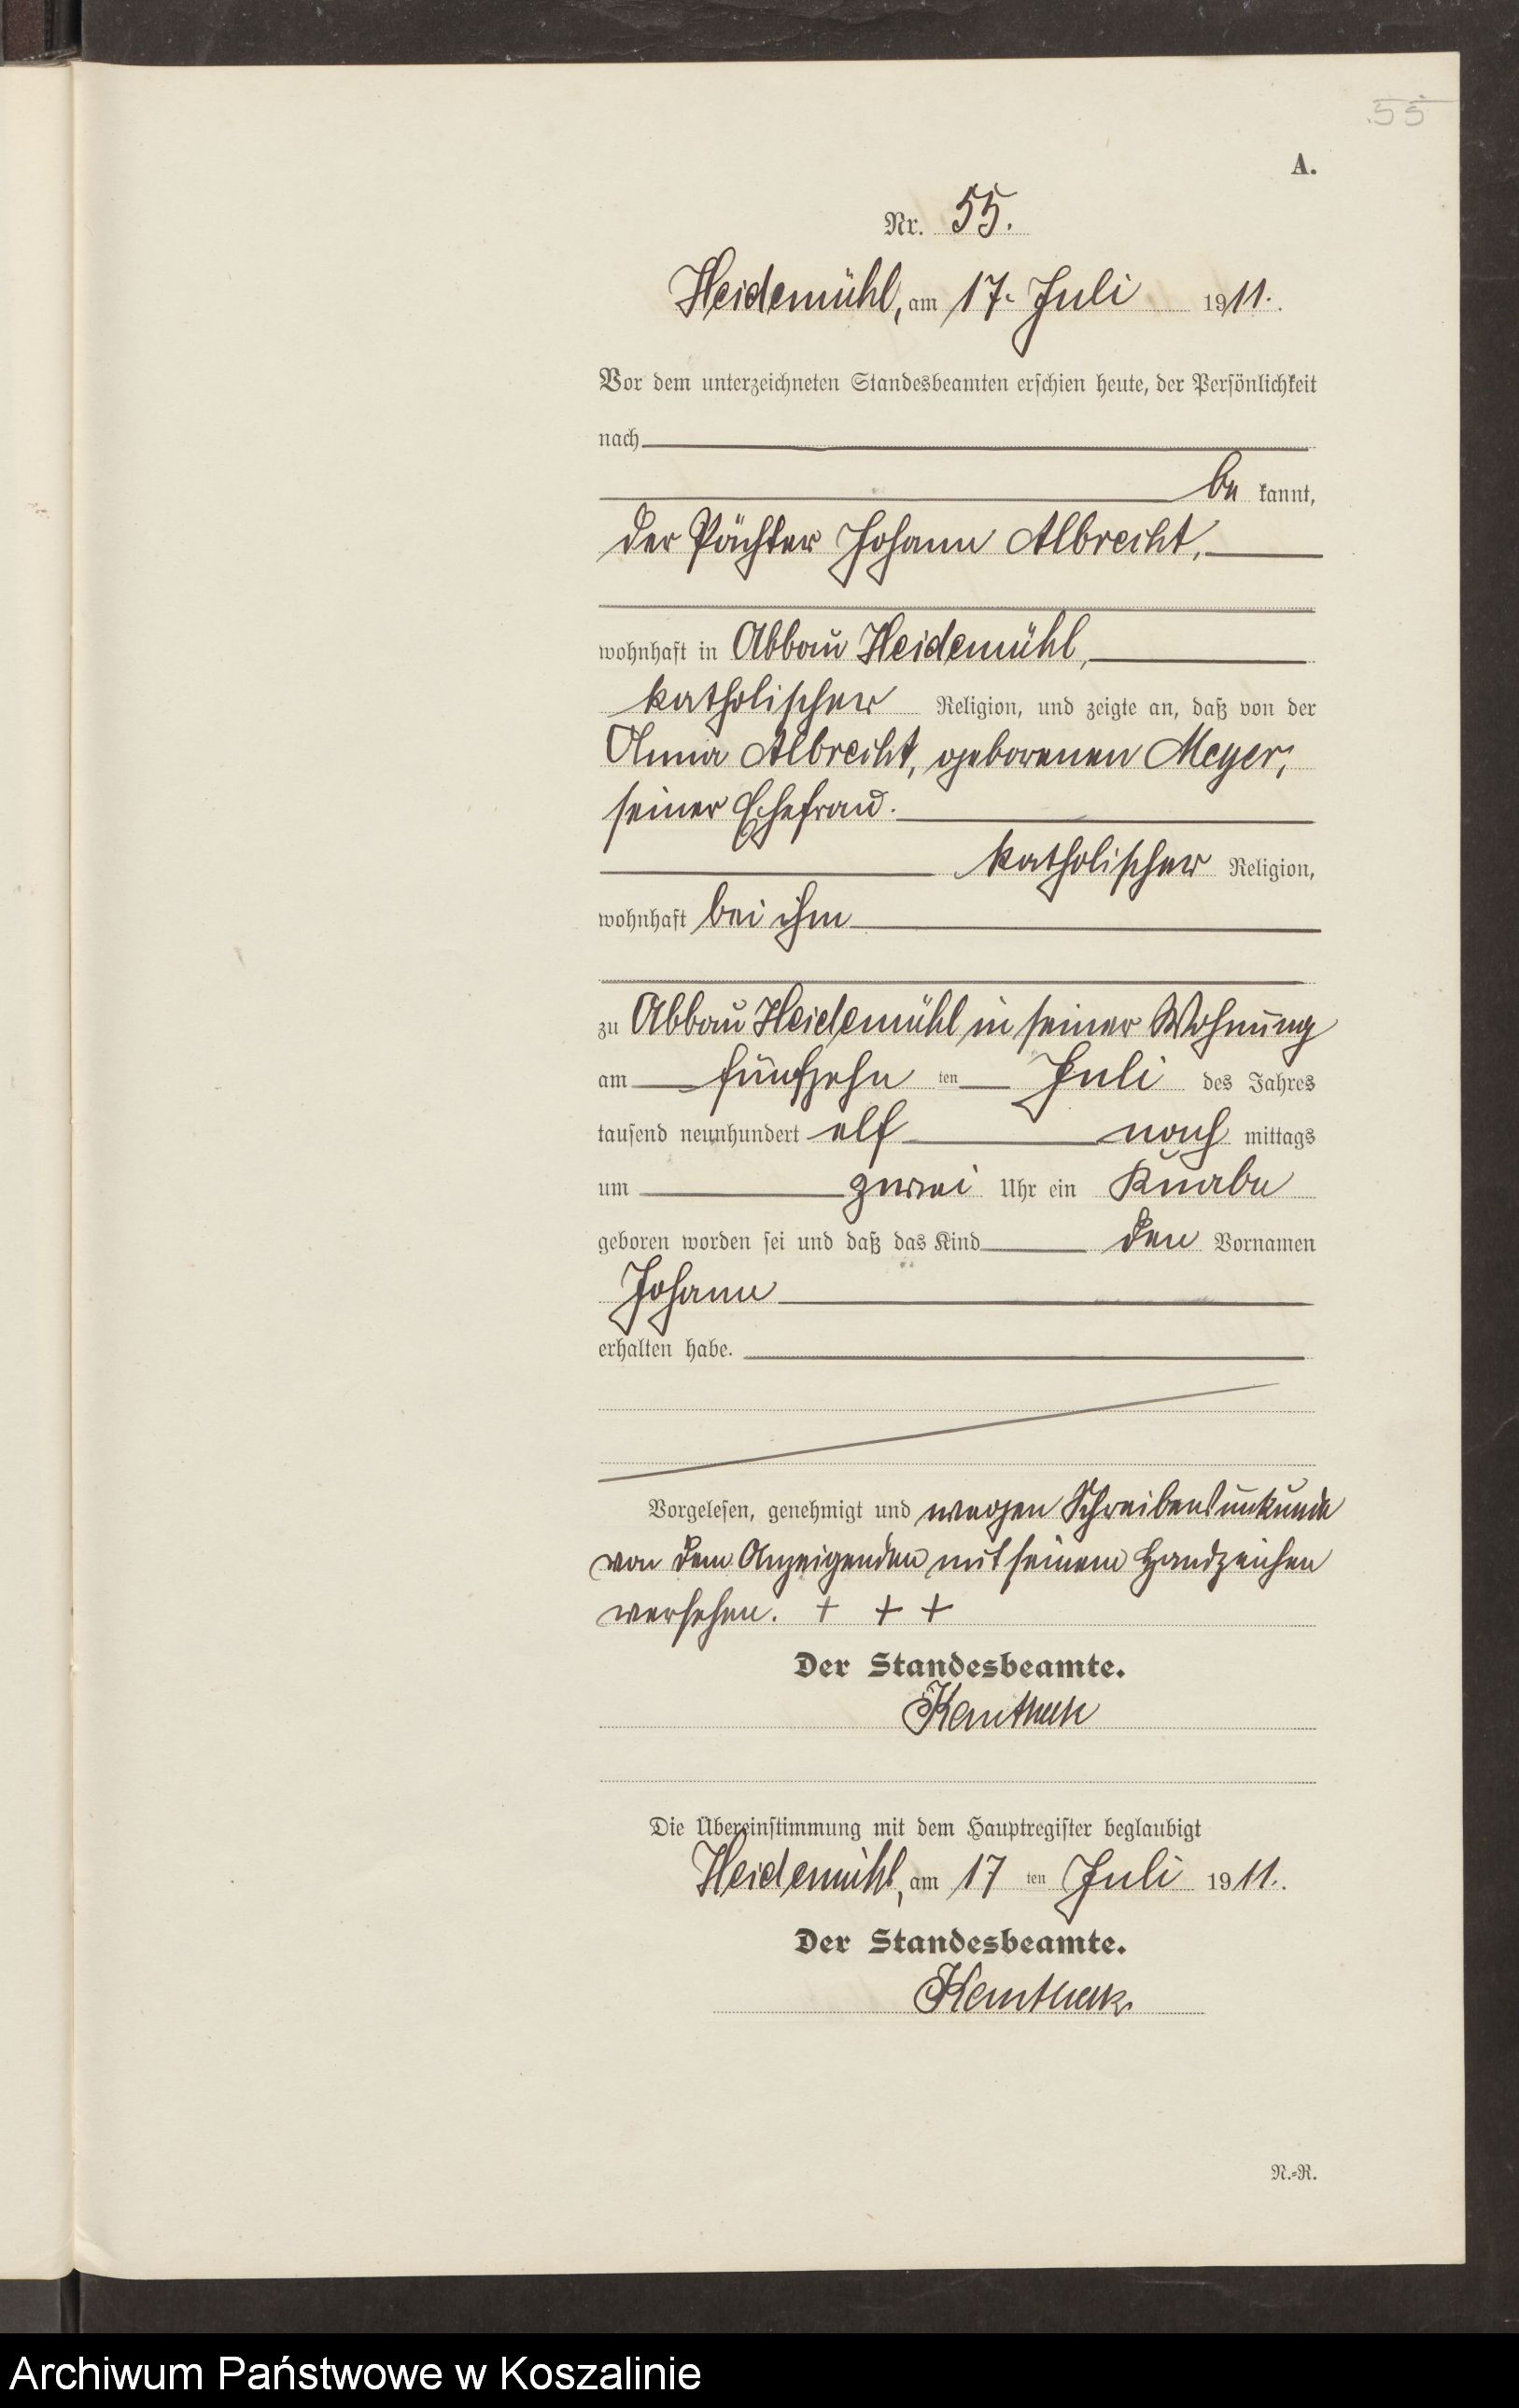 55
A.
Nr. 55.
Heidemühl, am 17. Juli 1911.
Vor dem unterzeichneten Standesbeamten erschien heute, der Persönlichkeit
nach
be kannt,
der Pächter Johann Albrecht,
wohnhaft in Abbau Heidemühl,
katholischer Religion, und zeigte an, daß von der
Anna Albrecht, geborenen Meyer,
seiner Ehefrau.
katholischer Religion,
wohnhaft bei ihm
zu Abbau Heidemühl in seiner Wohnung
am fünfzehn ten Juli des Jahres
tausend neunhundert elf nach mittags
um zwei Uhr ein Knabe
geboren worden sei und daß das Kind den Vornamen
Johann
erhalten habe.
Vorgelesen, genehmigt und wegen Schreibensunkunde
von dem Anzeigenden mit seinem Handzeichen
versehen. + + +
Der Standesbeamte.
Die Übereinstimmung mit dem Hauptregister beglaubigt
Heidemühl, am 17 ten Juli 1911.
Der Standesbeamte.
N.=R.
Archiwum Państwowe w Koszalinie